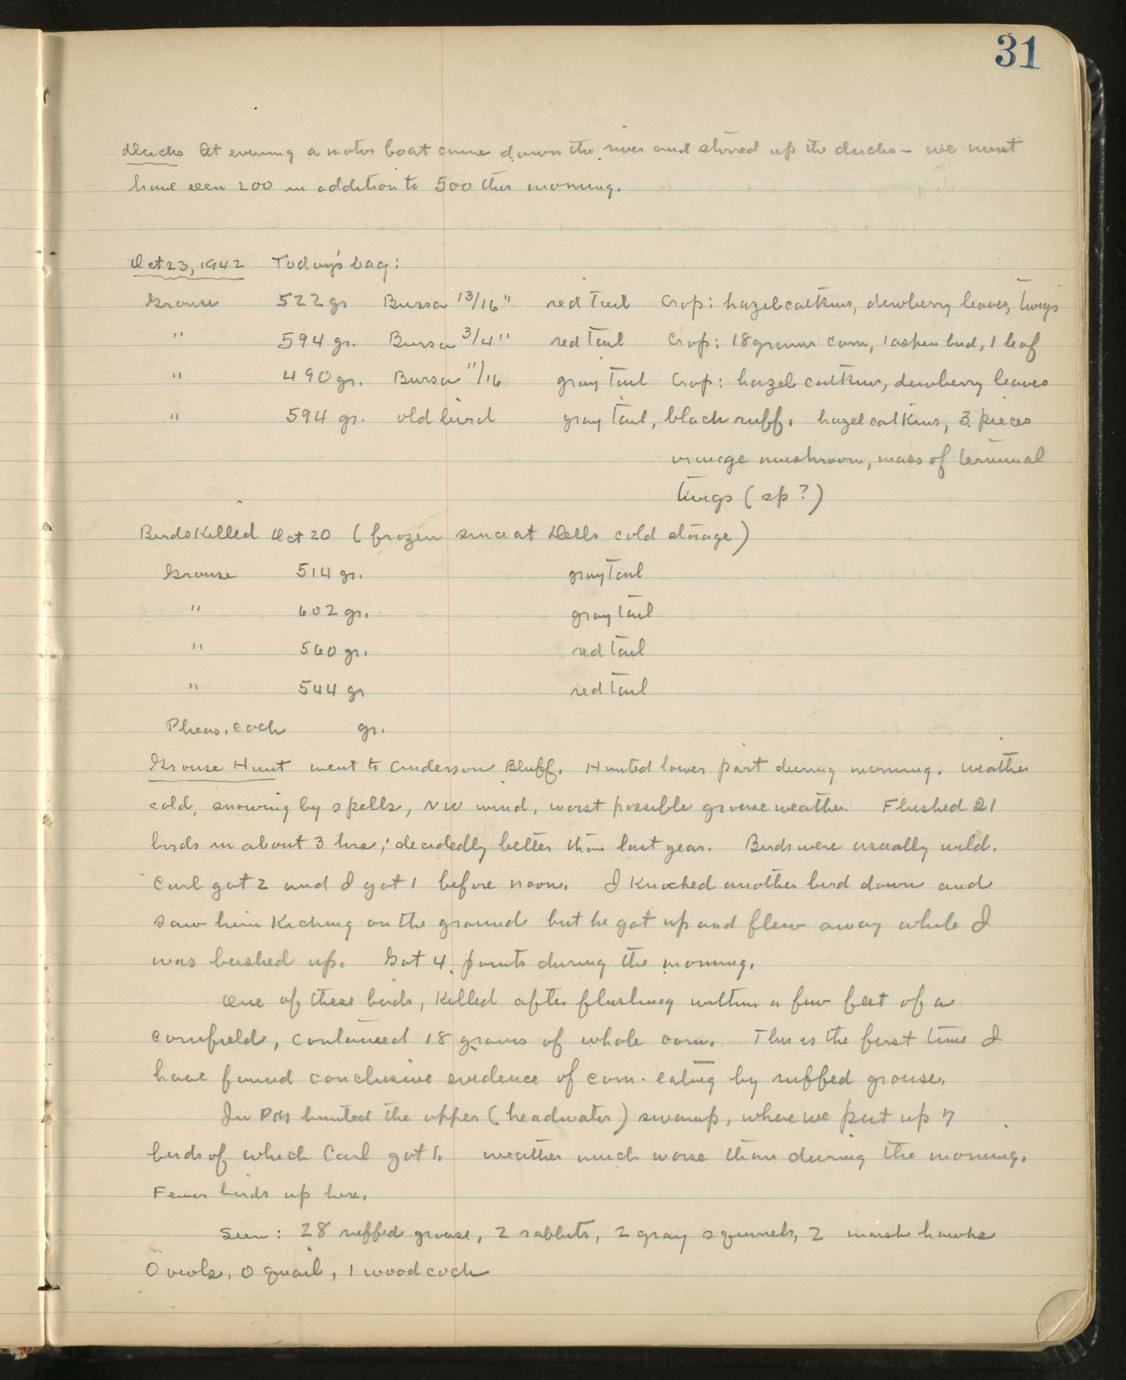 31
Ducks At evening a motor boat came down the river and stirred up the ducks - we must
have seen 200 in addition to 500 this morning.
Oct 23, 1942 Today's bag:
Grouse 522 gr Bursa 13/16" red tail Crop: hazel catkins, dewberry leaves, twigs
" 594 gr. Bursa 3/4" red tail Crop: 18 grams corn, 1 aspen bud, 1 leaf
" 490 gr. Bursa 11/16 gray tail Crop: hazel catkins, dewberry leaves
" 594 gr. old bird gray tail, black ruff. hazel catkins, 3 pieces
orange mushroom, mass of terminal
twigs (sp?)
Birds Killed Oct 20 (frozen since at Dells cold storage)
Grouse 514 gr. gray tail
" 602 gr. gray tail
" 560 gr. red tail
" 544 gr red tail
Pheas. cock gr.
Grouse Hunt went to Anderson Bluff. Hunted lower part during morning. Weather
cold, snowing by spells, NW wind, worst possible grouse weather. Flushed 21
birds in about 3 hrs; decidedly better than last year. Birds were usually wild.
Carl got 2 and I got 1 before noon. I knocked another bird down and
saw him kicking on the ground but he got up and flew away while I
was bushed up. Got 4 points during the morning.
One of these birds, killed after flushing within a few feet of a
cornfield, contained 18 grams of whole corn. This is the first time I
have found conclusive evidence of corn-eating by ruffed grouse.
In PM hunted the upper (headwater) swamp, where we put up 7
birds of which Carl got 1. Weather much worse than during the morning.
Fewer birds up here.
Seen: 28 ruffed grouse, 2 rabbits, 2 gray squirrels, 2 marsh hawks
0 owls, 0 quail, 1 woodcock